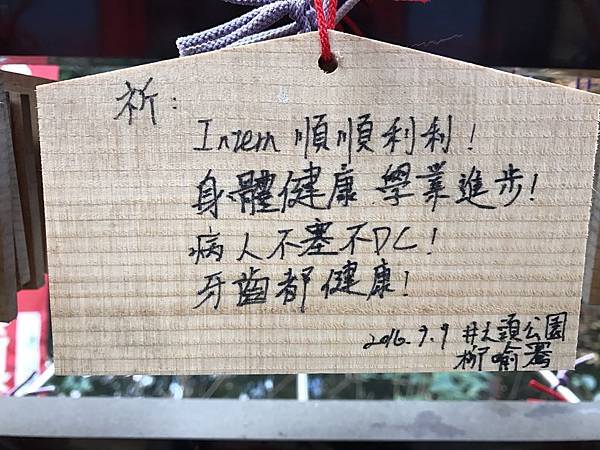 祈：
Intern 順順利利！
身體健康 學業進步！
病人不塞不DC！
牙齒都健康！
2016.9.9 井之頭公園
柳喻